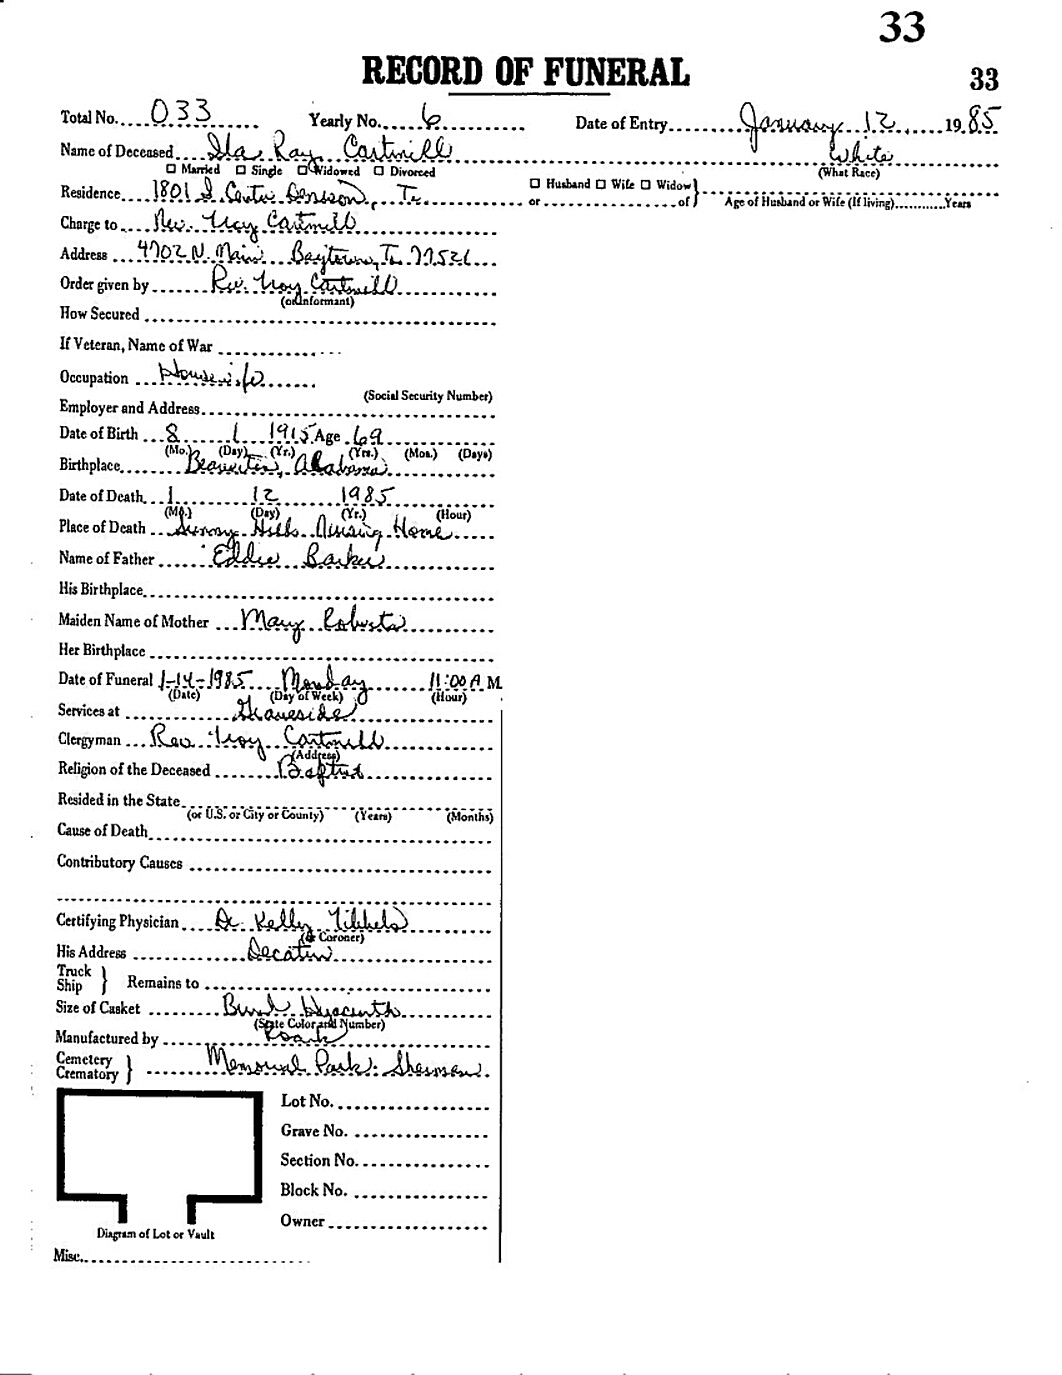 33
RECORD OF FUNERAL
33
Total No. 033 Yearly No. 6 Date of Entry January 12, 1985
Name of Deceased Ida Ray Cartmill White
☐ Married ☐ Single ☐ Widowed ☐ Divorced (What Race)
Residence 1801 S. Center Denison, Tx. ☐ Husband ☐ Wife ☐ Widow
or of Age of Husband or Wife (If living) Years
Charge to Rev. Troy Cartmill
Address 4702 N. Main Baytown, Tx. 77521
Order given by Rev. Troy Cartmill
(or Informant)
How Secured
If Veteran, Name of War
Occupation Housewife
(Social Security Number)
Employer and Address
Date of Birth 8 1 1915 Age 69
(Mo.) (Day) (Yr.) (Yrs.) (Mos.) (Days)
Birthplace Beaverton, Alabama
Date of Death 1 12 1985
(Mo.) (Day) (Yr.) (Hour)
Place of Death Sunny Hills Nursing Home
Name of Father Eddie Barker
His Birthplace
Maiden Name of Mother Mary Roberts
Her Birthplace
Date of Funeral 1-14-1985 Monday 11:00 A M.
(Date) (Day of Week) (Hour)
Services at Graveside
Clergyman Rev. Troy Cartmill
(Address)
Religion of the Deceased Baptist
Resided in the State
(or U.S. or City or County) (Years) (Months)
Cause of Death
Contributory Causes
Certifying Physician Dr. Kelly
(or Coroner)
His Address Decatur
Truck
Ship Remains to
Size of Casket Hyacinth
(State Color and Number)
Manufactured by
Cemetery
Crematory Memorial Park. Sherman.
Lot No.
Grave No.
Section No.
Block No.
Owner
Diagram of Lot or Vault
Misc.